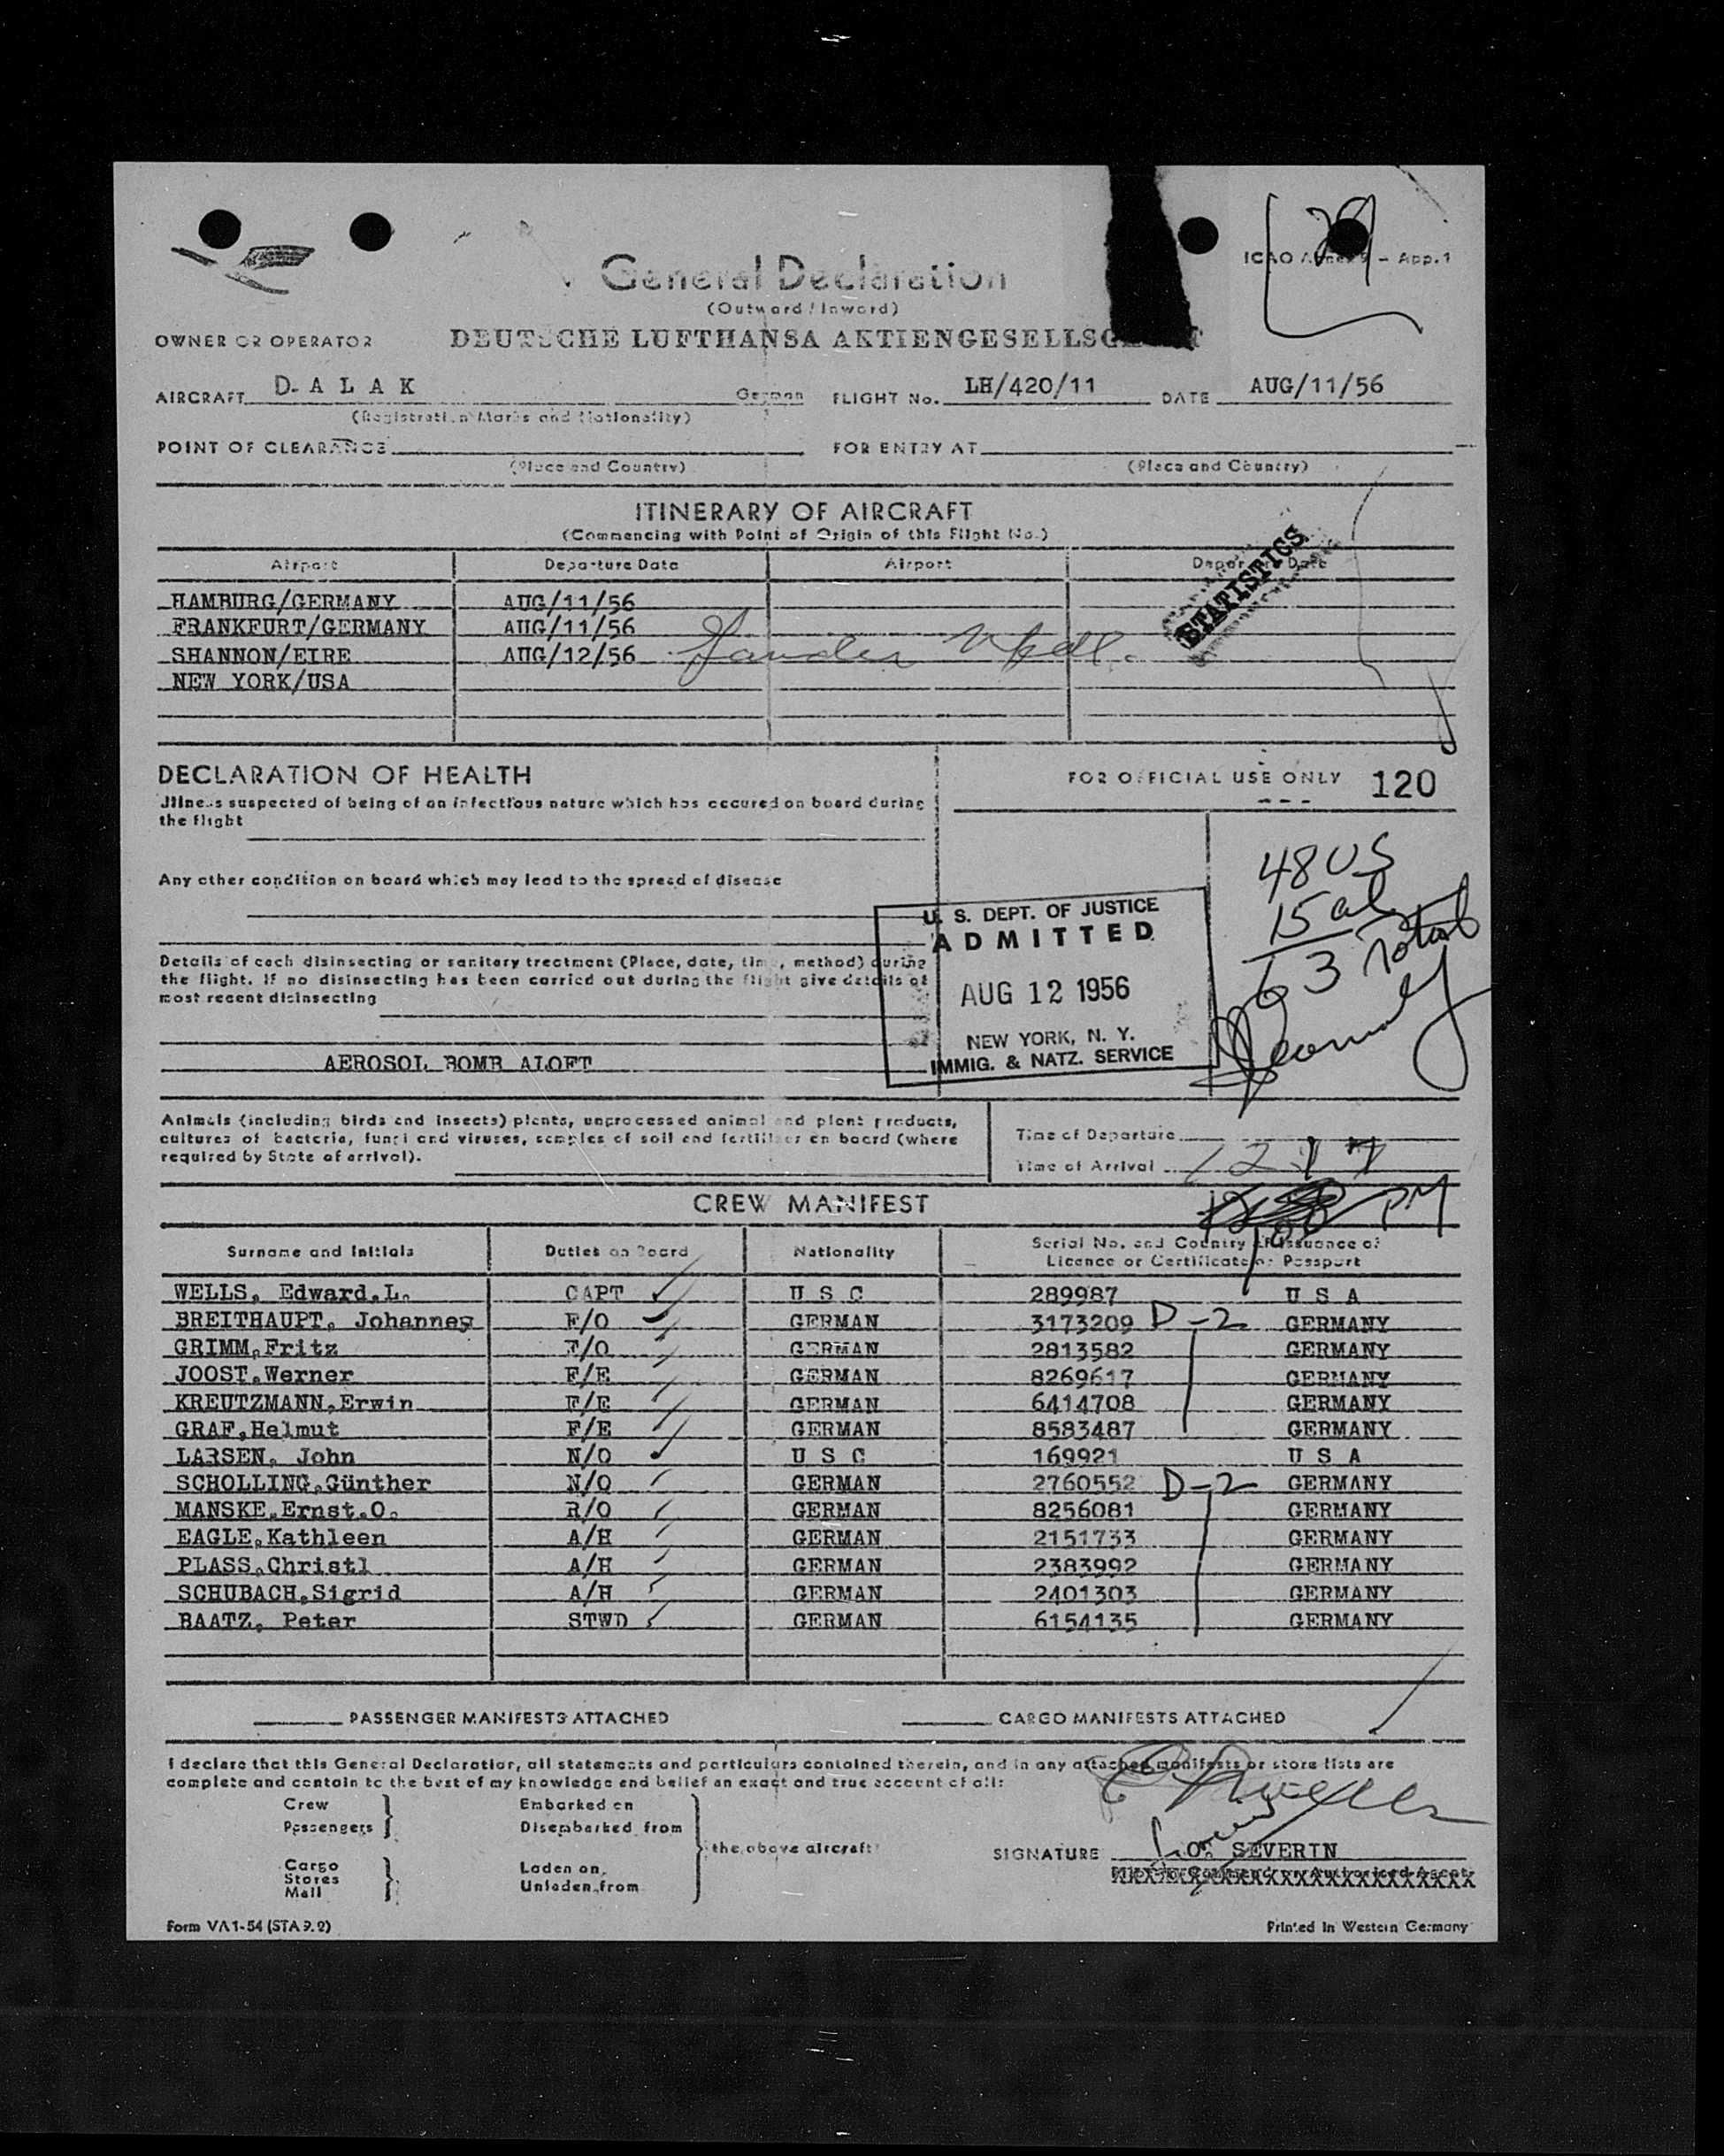 29
General Declaration
ICAO Annex 9 – App. 1
(Outward / Inward)
OWNER OR OPERATOR DEUTSCHE LUFTHANSA AKTIENGESELLSCHAFT
AIRCRAFT D-A L A K German FLIGHT No. LH/420/11 DATE AUG/11/56
(Registration Marks and Nationality)
POINT OF CLEARANCE FOR ENTRY AT
(Place and Country) (Place and Country)
ITINERARY OF AIRCRAFT
(Commencing with Point of Origin of this Flight No.)
Airport Departure Date Airport Departure Date
STATISTICS
HAMBURG/GERMANY AUG/11/56
FRANKFURT/GERMANY AUG/11/56
SHANNON/EIRE AUG/12/56 Gander Nfld.
NEW YORK/USA
DECLARATION OF HEALTH
FOR OFFICIAL USE ONLY 120
Jllness suspected of being of an infectious nature which has occured on board during
the flight
Any other condition on board which may lead to the spread of disease
48 US
15 al
63 Total
U. S. DEPT. OF JUSTICE
ADMITTED
AUG 12 1956
NEW YORK, N. Y.
IMMIG. & NATZ. SERVICE
Details of each disinsecting or sanitary treatment (Place, date, time, method) during
the flight. If no disinsecting has been carried out during the flight give details of
most recent disinsecting
AEROSOL BOMB ALOFT
Animals (including birds and insects) plants, unprocessed animal and plant products,
cultures of bacteria, fungi and viruses, samples of soil and fertiliser on board (where
required by State of arrival).
Time of Departure
Time of Arrival 1217
PM
CREW MANIFEST
Surname and Initials Duties on Board Nationality Serial No. and Country of Issuance of
Licence or Certificate or Passport
WELLS, Edward.L. CAPT U S C 289987 U S A
BREITHAUPT, Johannes F/O GERMAN 3173209 D-2 GERMANY
GRIMM,Fritz F/O GERMAN 2813582 GERMANY
JOOST,Werner F/E GERMAN 8269617 GERMANY
KREUTZMANN,Erwin F/E GERMAN 6414708 GERMANY
GRAF,Helmut F/E GERMAN 8583487 GERMANY
LARSEN, John N/O U S C 169921 U S A
SCHOLLING,Günther N/O GERMAN 2760552 D-2 GERMANY
MANSKE,Ernst.O. R/O GERMAN 8256081 GERMANY
EAGLE,Kathleen A/H GERMAN 2151733 GERMANY
PLASS,Christl A/H GERMAN 2383992 GERMANY
SCHUBACH,Sigrid A/H GERMAN 2401303 GERMANY
BAATZ, Peter STWD GERMAN 6154135 GERMANY
PASSENGER MANIFESTS ATTACHED CARGO MANIFESTS ATTACHED
I declare that this General Declaration, all statements and particulars contained therein, and in any attached manifests or store lists are
complete and contain to the best of my knowledge and belief an exact and true account of all:
Crew Embarked on
Passengers Disembarked from
the above aircraft
Cargo Laden on
Stores
Mail Unladen from
SIGNATURE O. SEVERIN
Pilot in Command or Authorised Agent
Form VA 1-54 (STA 9.2) Printed in Western Germany